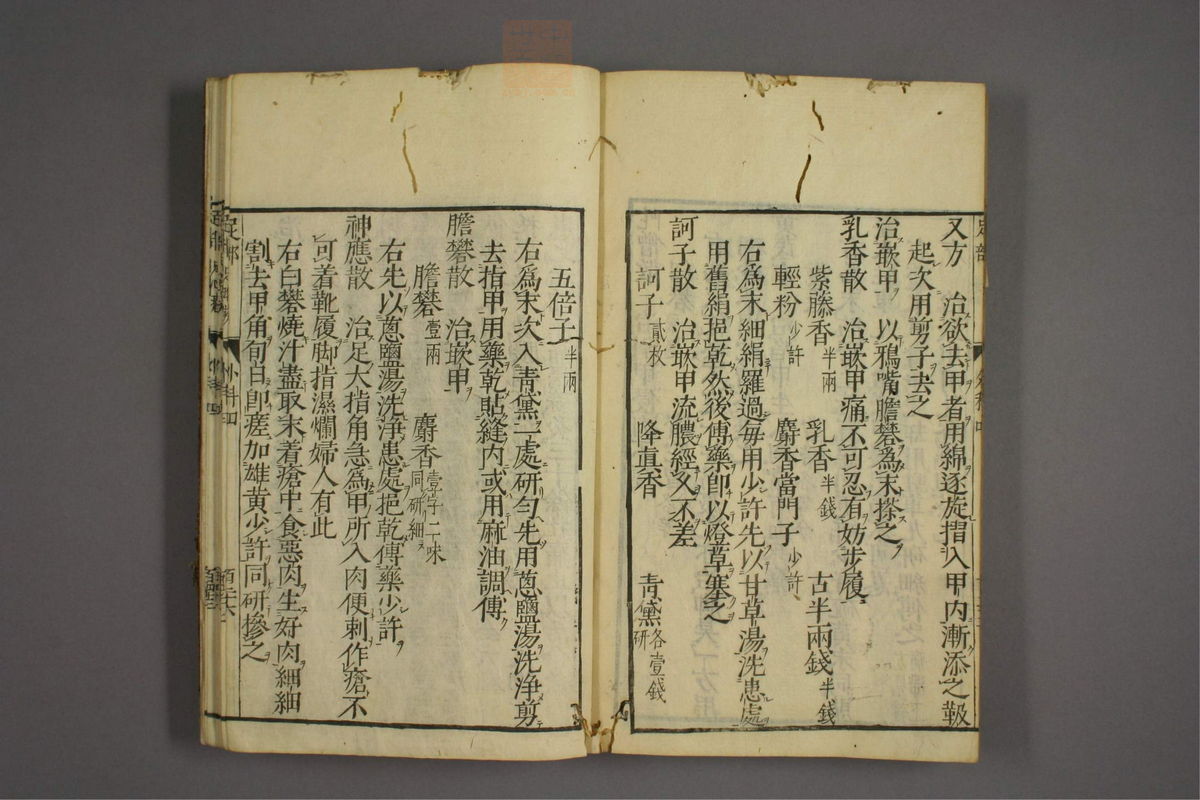 又方　治欲去甲者用綿逐旋搢入甲内漸添之靸
起次用剪子去之
治嵌甲　以鴉嘴膽礬為末搽之
乳香散　治嵌甲痛不可忍有妨步履
紫藤香半兩　乳香半錢　古半兩錢半錢
輕粉少許　麝香當門子少許
右為末細絹羅過毎用少許先以甘草湯洗患處
用舊絹挹乾然後傅藥即以燈草塞之
訶子散　治嵌甲流膿經久不差
訶子貳枚　降真香　青黛各壹錢研
五倍子半兩
右為末次入青黛一處研勻先用蔥鹽湯洗淨剪
去指甲用藥乾貼縫内或用麻油調傅
膽礬散　治嵌甲
膽礬壹兩　麝香壹字二味同研細
右先以蔥鹽湯洗淨患處挹乾傅藥少許
神應散　治足大指角急為甲所入肉便刺作瘡不
可着靴履脚指濕爛婦人有此
右白礬燒汁盡取末着瘡中食惡肉生好肉細細
割去甲角旬日即瘥加雄黄少許同研摻之
外科四